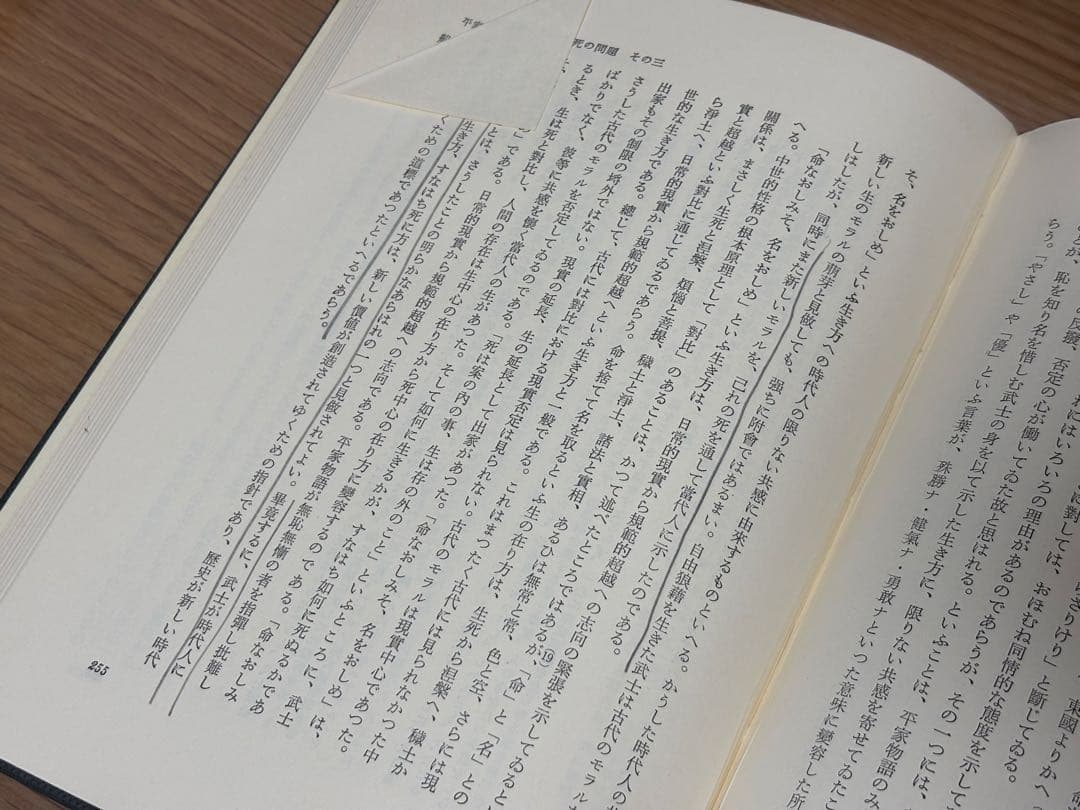 東國よりかへ
ざりけり」と斷じてゐる。
に對しては、おほむね同情的な態度を示して
これにはいろいろの理由があるのであらうが、その一つには、
否定の心が働いてゐた故と思はれる。といふことは、平家物語のみ
恥を知り名を惜しむ武士の身を以て示した生き方に、限りない共感を寄せてゐたこ
らう。「やさし」や「優」といふ言葉が、殊勝ナ・健氣ナ・勇敢ナといつた意味に變容した所
死の問題 その三
そ、名をおしめ」といふ生き方への時代人の限りない共感に由來するものといへる。かうした時代人の共
新しい生のモラルの萌芽と見做しても、強ちに附會ではあるまい。自由狼藉を生きた武士は古代のモラル
しはしたが、同時にまた新しいモラルを、己れの死を通して當代人に示したのである。
「命なおしみそ、名をおしめ」といふ生き方は、日常的現實から規範的超越への志向の緊張を示してゐると
へる。中世的性格の根本原理として「對比」のあることは、かつて述べたところではあるが、⑲「命」と「名」との
關係は、まさしく生死と涅槃、煩惱と菩提、穢土と淨土、諸法と實相、あるひは無常と常、色と空、さらには現
實と超越といふ對比に通じてゐるであらう。命を捨てて名を取るといふ生の在り方は、生死から涅槃へ、穢土か
ら淨土へ、日常的現實から規範的超越へといふ生き方と一般である。これはまつたく古代には見られなかつた中
世的な生き方である。總じて、古代には對比における現實否定は見られない。古代のモラルは現實中心であつた。
出家もその制限の埒外ではない。現實の延長、生の延長として出家があつた。「命なおしみそ、名をおしめ」は、
さうした古代のモラルを否定してゐるのである。「死は案の内の事、生は存の外のこと」といふところに、武士
ばかりでなく、彼等に共感を懷く當代人の生があつた。そして如何に生きるかが、すなはち如何に死ぬるかであ
るとき、生は死と對比し、人間の存在は生中心の在り方から死中心の在り方に變容する。「命なおしみ
」である。日常的現實から規範的超越への志向である。平家物語が無恥無慚の者を指彈し批難し
とは、さうしたことの明らかなあらはれの一つと見做されてよい。畢竟するに、武士が時代人に
生き方、すなはち死に方は、新しい價値が創造されてゆくための指針であり、歷史が新しい時代
くための道標であつたといへるであらう。
255